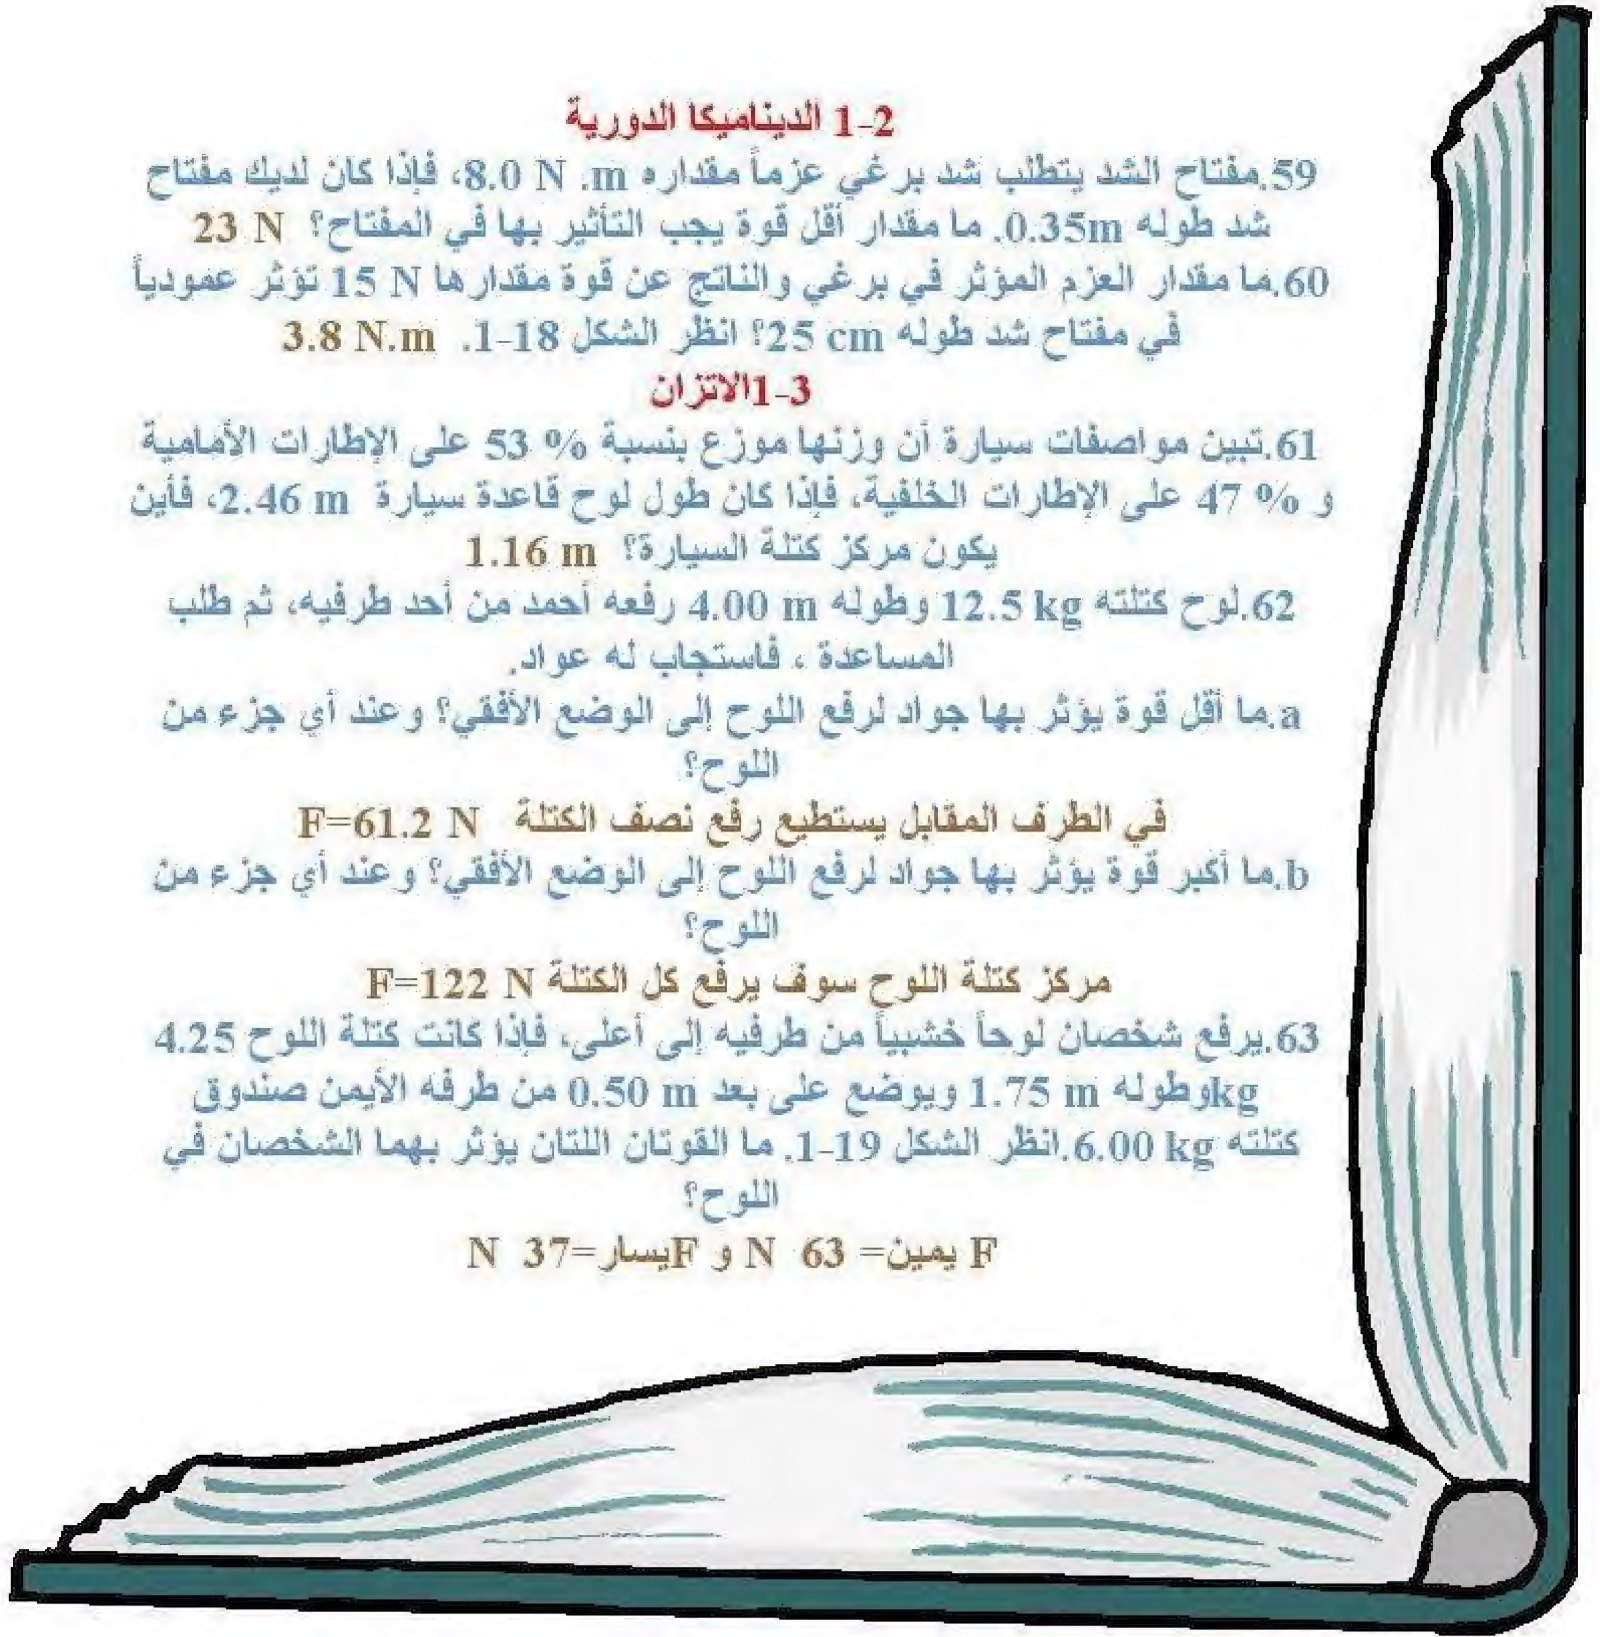 1-2 الديناميكا الدورية
59.مفتاح الشد يتطلب شد برغي عزماً مقداره 8.0 N .m، فإذا كان لديك مفتاح
شد طوله 0.35m. ما مقدار أقل قوة يجب التأثير بها في المفتاح؟ 23 N
60.ما مقدار العزم المؤثر في برغي والناتج عن قوة مقدارها 15 N تؤثر عمودياً
في مفتاح شد طوله 25 cm؟ انظر الشكل 18-1. 3.8 N.m
1-3الاتزان
61.تبين مواصفات سيارة أن وزنها موزع بنسبة % 53 على الإطارات الأمامية
و % 47 على الإطارات الخلفية، فإذا كان طول لوح قاعدة سيارة 2.46 m، فأين
يكون مركز كتلة السيارة؟ 1.16 m
62.لوح كتلته 12.5 kg وطوله 4.00 m رفعه أحمد من أحد طرفيه، ثم طلب
المساعدة ، فاستجاب له عواد.
a.ما أقل قوة يؤثر بها جواد لرفع اللوح إلى الوضع الأفقي؟ وعند أي جزء من
اللوح؟
في الطرف المقابل يستطيع رفع نصف الكتلة F=61.2 N
b.ما أكبر قوة يؤثر بها جواد لرفع اللوح إلى الوضع الأفقي؟ وعند أي جزء من
اللوح؟
مركز كتلة اللوح سوف يرفع كل الكتلة F=122 N
63.يرفع شخصان لوحاً خشبياً من طرفيه إلى أعلى، فإذا كانت كتلة اللوح 4.25
kgوطوله 1.75 m ويوضع على بعد 0.50 m من طرفه الأيمن صندوق
كتلته 6.00 kg.انظر الشكل 19-1. ما القوتان اللتان يؤثر بهما الشخصان في
اللوح؟
F يمين= 63 N و Fيسار=37 N